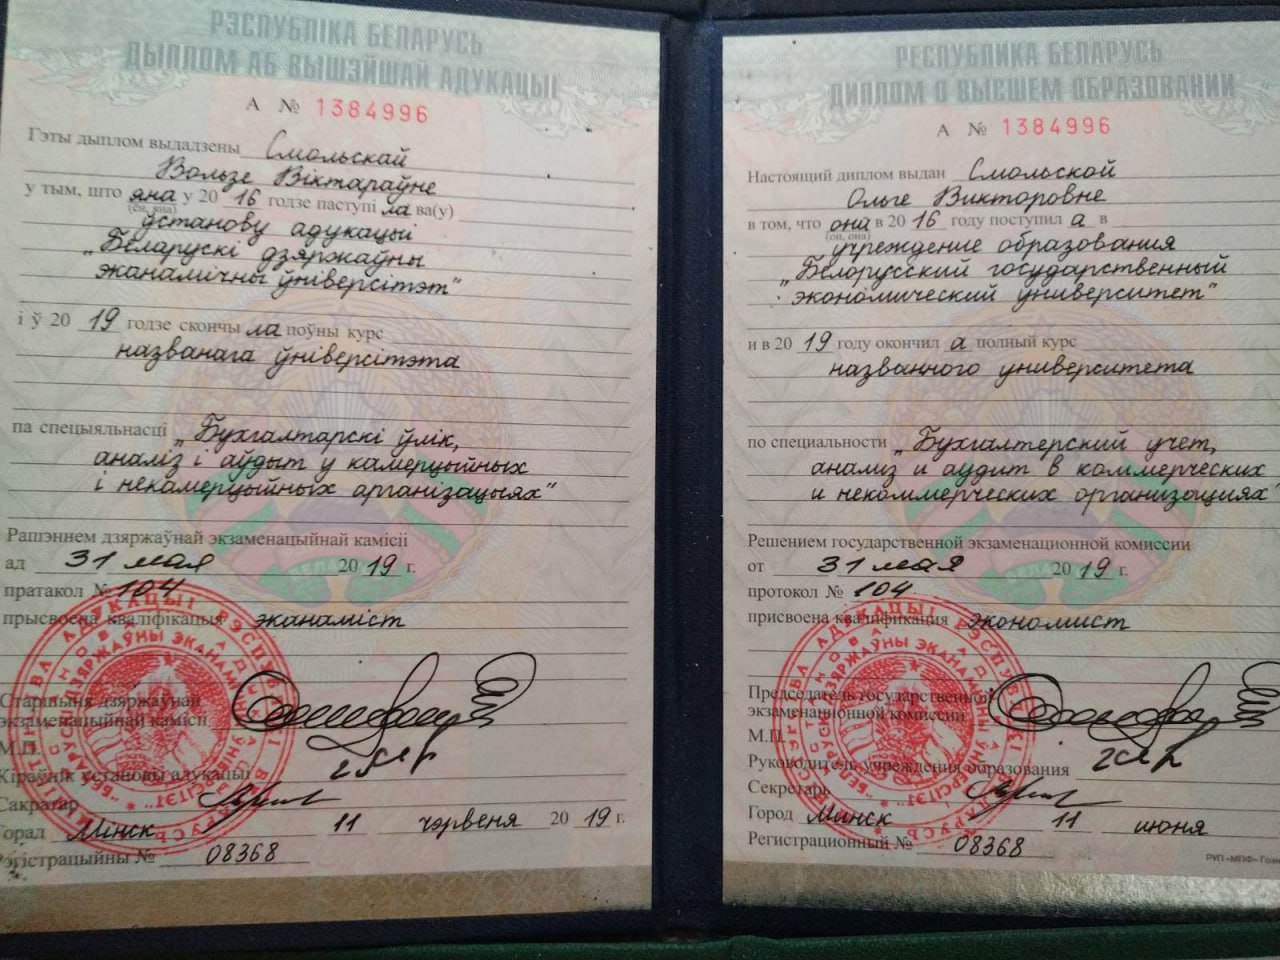 РЭСПУБЛІКА БЕЛАРУСЬ
ДЫПЛОМ АБ ВЫШЭЙШАЙ АДУКАЦЫІ
А № 1384996
Гэты дыплом выдадзены Смольскай
Вользе Віктараўне
у тым, што яна у 20 16 годзе паступі ла ва(у)
(ён, яна)
ўстанову адукацыі
„Беларускі дзяржаўны
эканамічны ўніверсітэт"
і ў 20 19 годзе скончы ла поўны курс
названага ўніверсітэта
па спецыяльнасці „Бухгалтарскі ўлік,
аналіз і аўдыт у камерцыйных
і некамерцыйных арганізацыях"
Рашэннем дзяржаўнай экзаменацыйнай камісіі
ад 31 мая 20 19 г.
пратакол № 104
прысвоена кваліфікацыя эканаміст
Старшыня дзяржаўнай
экзаменацыйнай камісіі
М.П.
Кіраўнік установы адукацыі
Сакратар
Горад Мінск 11 чэрвеня 20 19 г.
Рэгістрацыйны № 08368
РЕСПУБЛИКА БЕЛАРУСЬ
ДИПЛОМ О ВЫСШЕМ ОБРАЗОВАНИИ
А № 1384996
Настоящий диплом выдан Смольской
Ольге Викторовне
в том, что она в 20 16 году поступил а в
(он, она)
учреждение образования
„Белорусский государственный
экономический университет"
и в 20 19 году окончил а полный курс
названного университета
по специальности „Бухгалтерский учет,
анализ и аудит в коммерческих
и некоммерческих организациях"
Решением государственной экзаменационной комиссии
от 31 мая 20 19 г.
протокол № 104
присвоена квалификация экономист
Председатель государственной
экзаменационной комиссии
М.П.
Руководитель учреждения образования
Секретарь
Город Минск 11 июня
Регистрационный № 08368
РУП «МПФ»